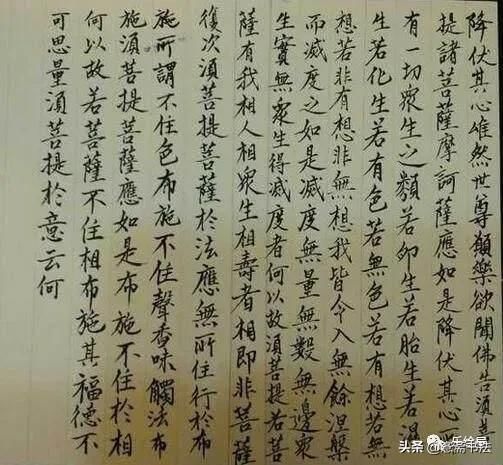 降伏其心唯然世尊願樂欲聞佛告須菩
提諸菩薩摩訶薩應如是降伏其心所
有一切眾生之類若卵生若胎生若濕
生若化生若有色若無色若有想若無
想若非有想非無想我皆令入無餘涅槃
而滅度之如是滅度無量無數無邊眾
生實無眾生得滅度者何以故須菩提若菩
薩有我相人相眾生相壽者相即非菩薩
復次須菩提菩薩於法應無所住行於布
施所謂不住色布施不住聲香味觸法布
施須菩提菩薩應如是布施不住於相
何以故若菩薩不住相布施其福德不
可思量須菩提於意云何
乐绘局
头条